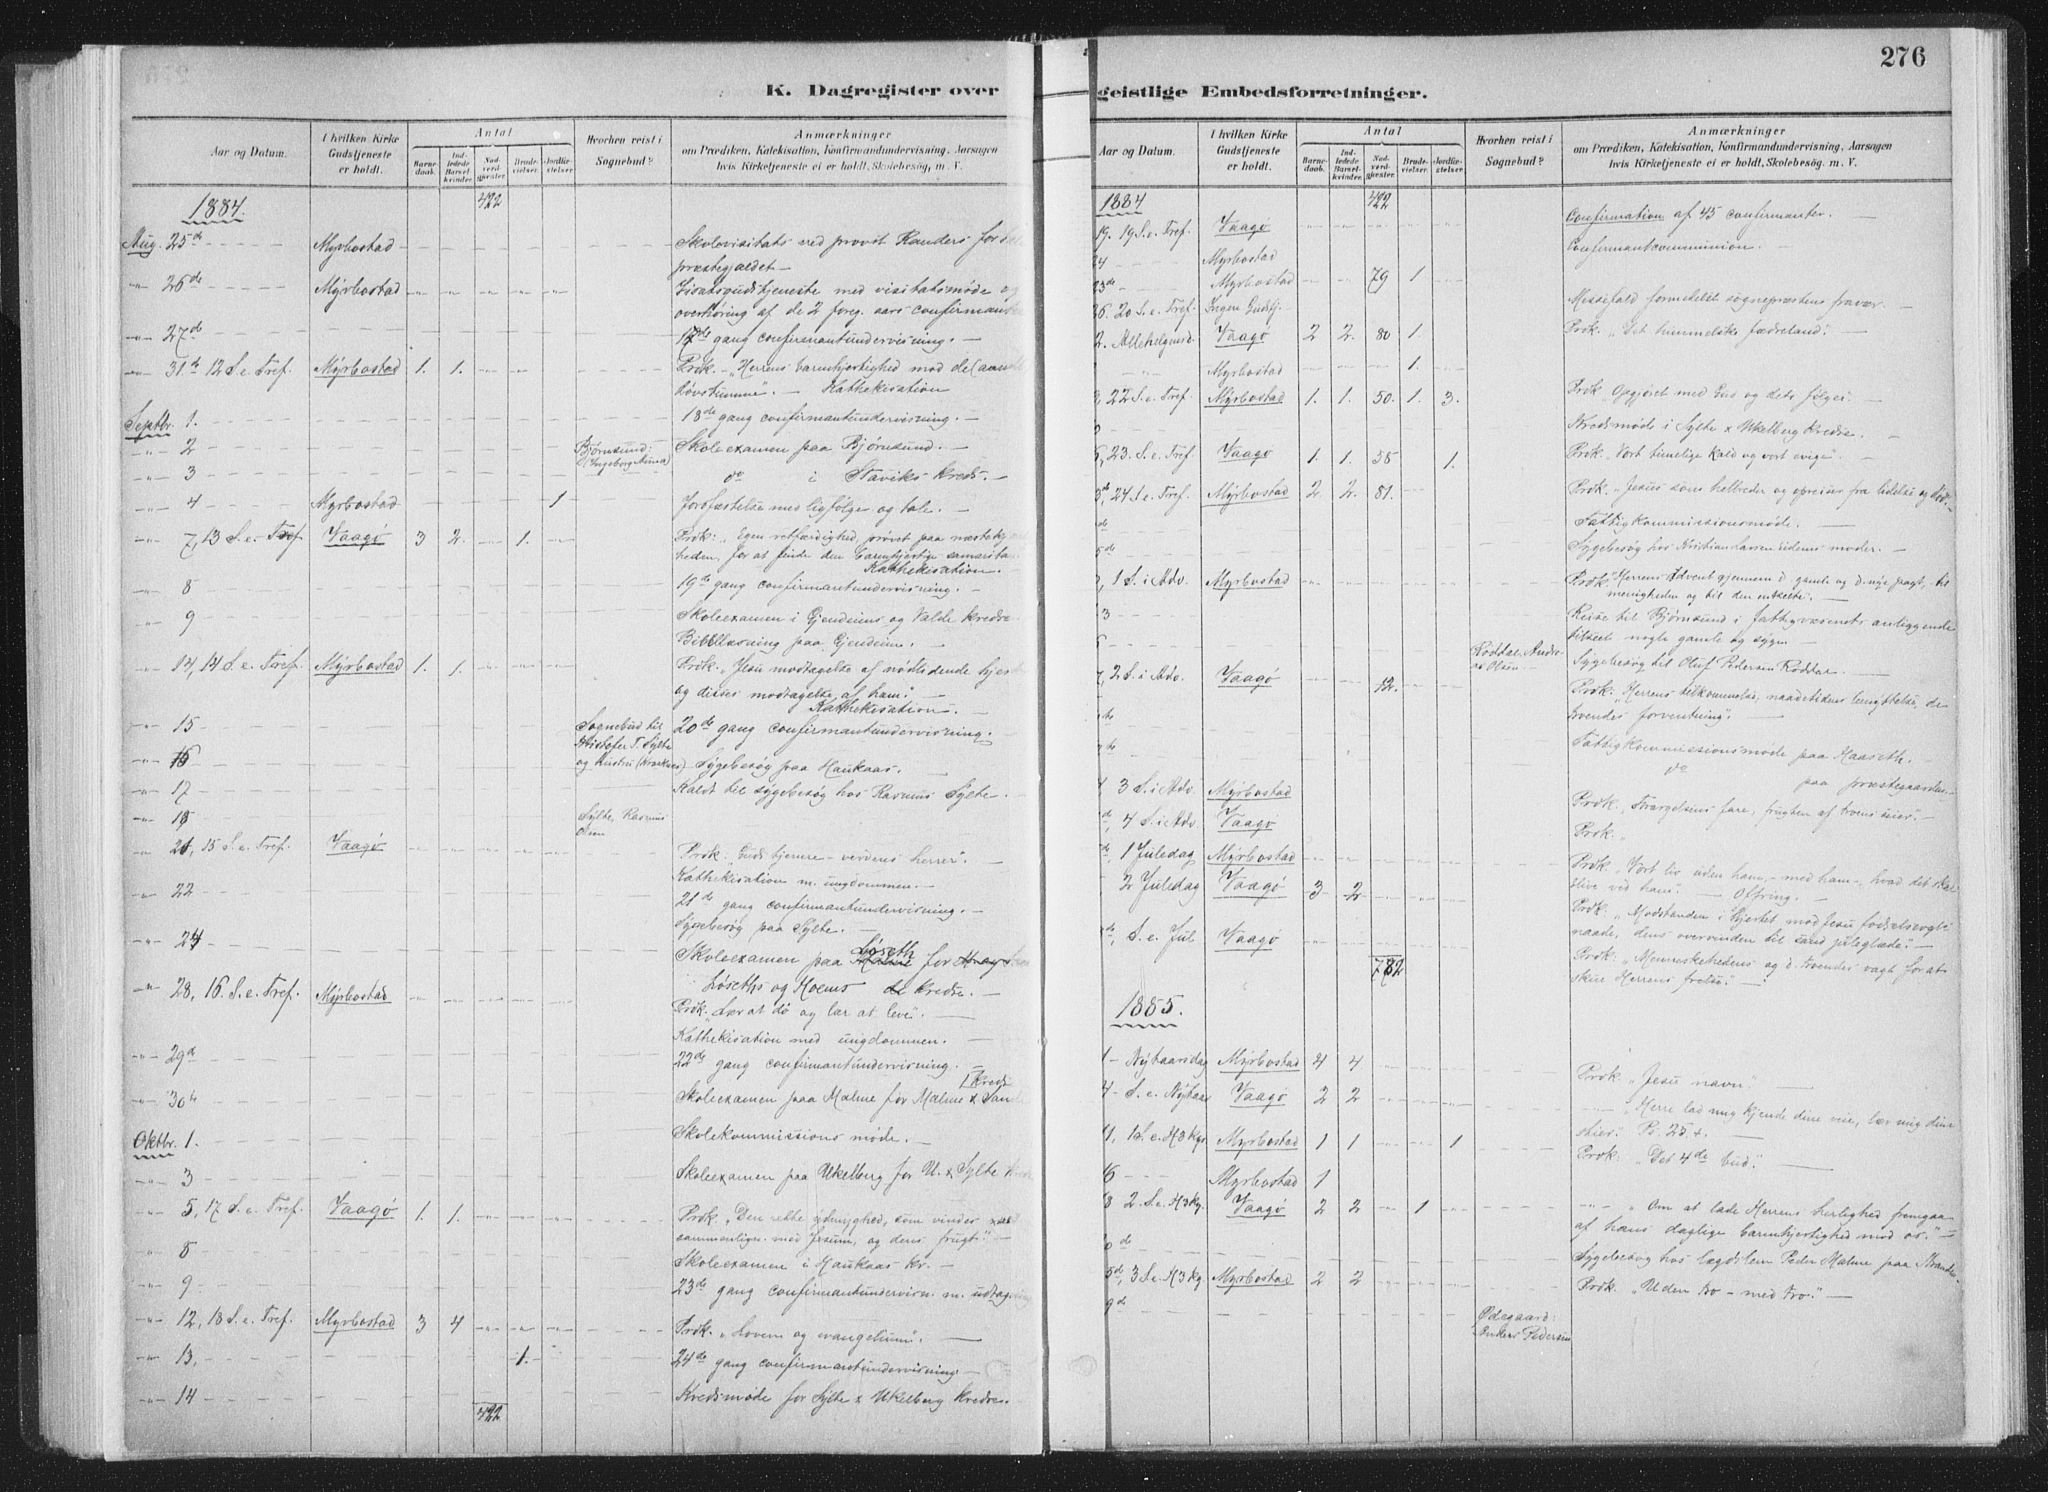 276
K. Dagregister over geistlige Embedsforretninger.
Aar og Datum. I hvilken Kirke Gudstjeneste er holdt. Antal Barne-daab. Ind-ledede Barsel-kvinder. Nad-verd-gjæster. Brude-vielser. Jordfæ-stelser. Hvorhen reist i Sognebud? Anmærkninger
om Prædiken, Katekisation, Konfirmandundervisning, Aarsagen
hvis Kirketjeneste ei er holdt, Skolebesøg, m. V.
1884. 422
Aug. 25de Myrbostad Skolevisitats ved provst Kanders for
præstegjældet —
-"- 26de Myrbostad med visitatsmøde og
overhøring af de 2 foreg. aars confirmanter
-"- 27de 17de gang confirmantundervisning. —
-"- 31te 12 S. e. Tref. Myrbostad 1. 1. Prök. "Herrens barmhjertighed mod de
døvstumme". — Kathekisation
Septbr. 1. 18de gang confirmantundervisning. —
-"- 2 Bjørnsund: Skoleexamen paa Bjørnsund. —
-"- 3 do i Staviks kreds. —
-"- 4 Myrbostad 1 Jordfæstelse med ligfølge og tale. —
-"- 7, 13 S. e. Tref. Vaagø 3 2. 1. Prök: "Egen retfærdighed, prøvet paa
heden, for at finde den barmhjertige samaritan
Kathekisation. —
-"- 8 19de gang confirmantundervisning. —
-"- 9 Skoleexamen i Gjendems og Valde kredse
Bibellæsning paa Gjendem. —
-"- 14, 14 S. e. Tref. Myrbostad 1. 1. Prök. "Jesu modtagelse af nødlidende
og disses modtagelse af ham". —
Kathekisation. —
-"- 15 Sognebud til 20de gang confirmantundervisning. —
Kristofer T. Sylte
-"- 16 og Hustru Sygebesøg paa Haukaas. —
-"- 17 Kaldt til sygebesøg hos Rasmus Sylte. —
-"- 18 Sylte, Rasmus
Olsen
-"- 21, 15 S. e. Tref. Vaagø Prök. "Guds tjenere – verdens herrer". —
Kathekisation m. ungdommen. —
-"- 22 21de gang confirmantundervisning. —
Sygebesøg paa Sylte. —
-"- 24 Skoleexamen paa Løseth for
Løseths og Hoems kredse. —
-"- 28, 16. S. e. Tref. Myrbostad Prök. "Lær at dø og lær at leve". —
Kathekisation med ungdommen. —
-"- 29de 22de gang confirmantundervisning. —
-"- 30te Skoleexamen paa Malme for Malme &
Oktbr. 1. Skolekommissions møde. —
-"- 3 Skoleexamen paa Ukelberg for U. & Sylte
-"- 5, 17 S. e. Tref. Vaagø 1. 1. Prök. "Den rette ydmyghed, som vindes
med Jesum, og dens frugt". —
-"- 8 Skoleexamen i Haukaas kr. —
-"- 9 23de gang confirmantundervisn. m.
-"- 12, 18 S. e. Tref. Myrbostad 3 4 Prök. "Loven og evangelium". —
-"- 13, 1. 24de gang confirmantundervisning. —
-"- 14 Kredsmøde for Sylte & Ukelberg kredse.
422
Aar og Datum. I hvilken Kirke Gudstjeneste er holdt. Antal Barne-daab. Ind-ledede Barsel-kvinder. Nad-verd-gjæster. Brude-vielser. Jordfæ-stelser. Hvorhen reist i Sognebud? Anmærkninger
om Prædiken, Katekisation, Konfirmandundervisning, Aarsagen
hvis Kirketjeneste ei er holdt, Skolebesøg, m. V.
1884 422
19. 19 S. e. Tref. Vaagø Confirmation af 45 confirmanter. —
24 Myrbostad Confirmantcommunion. —
23de Myrbostad 79 1.
26. 20 S. e. Tref. Ingen Gudstj. Messefald formedelst sognepræstens fravær. —
2. Allehelgensd. Vaagø 2 2. 80 1. Prök. "Det himmelske fædreland." —
Myrbostad 1.
22 S. e. Tref. Myrbostad 1. 1. 50. 1. 3. Prök. Opgjøret med Gud og dets følger. —
Kredsmøde i Sylte & Ukelberg kredse. —
23. S. e. Tref. Vaagø 1. 1. 58 1. Prök. "Vort timelige kald og vort evige". —
24 S. e. Tref. Myrbostad 2 2. 81. Prök. "Jesus som helbreder og opreiser fra lidelse og
Fattigkommissionsmøde. —
Sygebesøg hos moder. —
1 S. i Adv. Myrbostad Prök. "Herrens advent gjennem d. gamle og d. nye pagt, til
menigheden og til den enkelte. —
Reise til Bjørnsund i fattigvæsenets anliggende
nogle gamle og syge
Røddal, Andre- Sygebesøg til Oluf Pedersen Røddal
as Olsen
2 S. i Adv. Vaagø 12. Prök. "Herrens tilkommelse, naadetidens benyttelse, de
troendes forventning". —
Fattigkommissionsmøde paa Haaseth. —
do paa præstegaarden. —
3 S. i Adv. Myrbostad Prök. Forargelsens fare, frugten af troens seier. —
4 S. i Adv. Vaagø Prök. "
1 Juledag Myrbostad Prök. "Vort liv uden ham, – med ham –, hvad det skal
blive ved ham". — Offring. —
2 Juledag Vaagø 3 2 Prök. "Modstanden i hjertet mod Jesu fødsels
naade, dens overvinden til sand juleglæde". —
S. e. Jul Vaagø Prök. "Menneskehedens og d. troendes vagt for at
782 skue Herrens frelse". —
1885.
1 – Nytaarsdag Myrbostad 4 4 Prök. "Jesu navn". —
4 – S. e. Nytaar Vaagø 2 2 "Herre lad mig kjende dine veie, lær mig dine
stier". Ps. 25.4. —
11, 1 S. e. H3kgs Myrbostad 1 1 1 Prök. "Det 4de bud". —
16 Myrbostad 1
18 2. S. e. H3kg. Vaagø 2 2 1 "Om at lade Herrens herlighed fremgaa
af hans daglige barmhjertighed mod os". —
Sygebesøg hos lægdslem Peder Malme paa
3 S. e. H3kg. Myrbostad 2 2 Prök. "Uden tro – med tro." —
Ødegaard:
Anders Pedersen